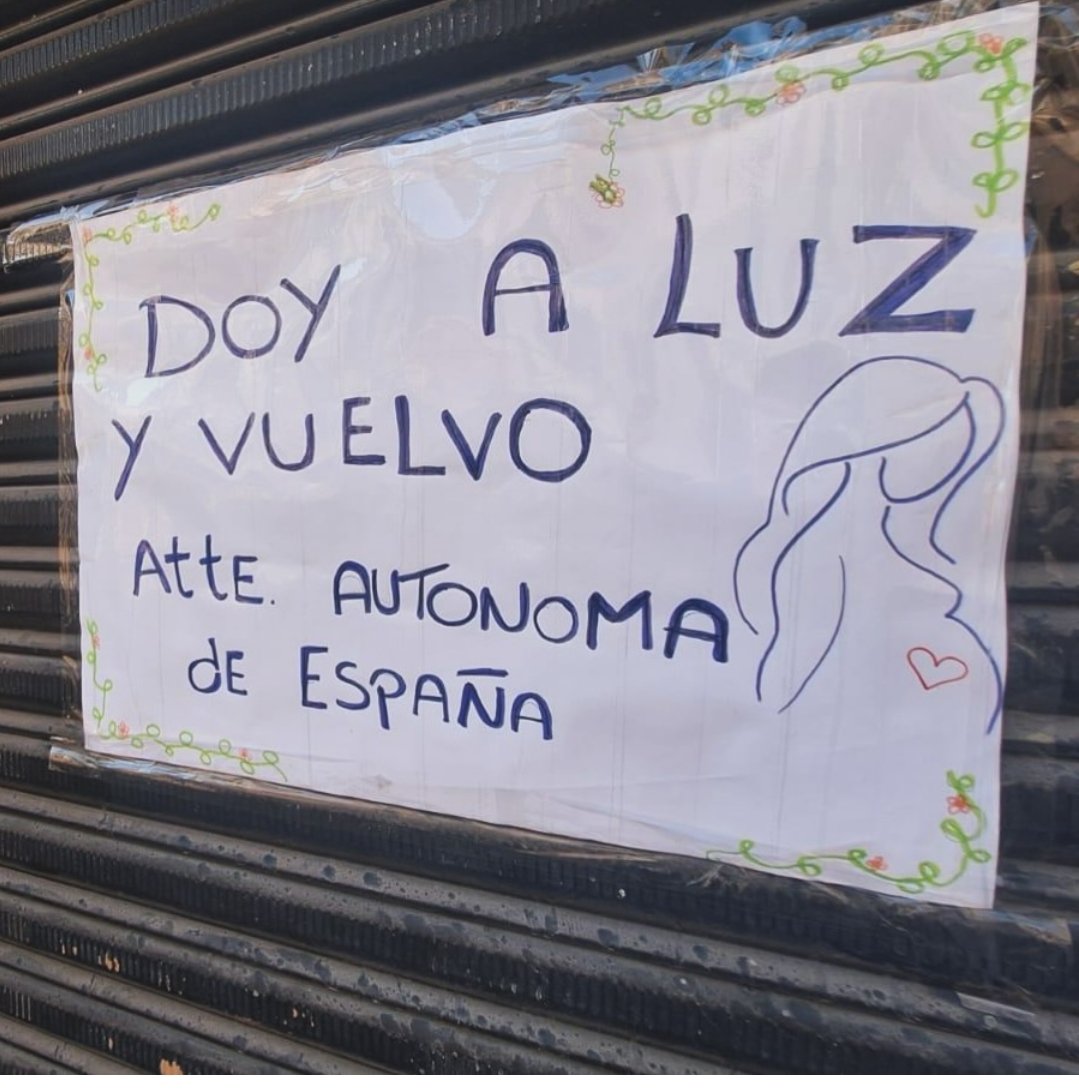 DOY A LUZ
Y VUELVO
AttE. AUTONOMA
dE ESPAÑA